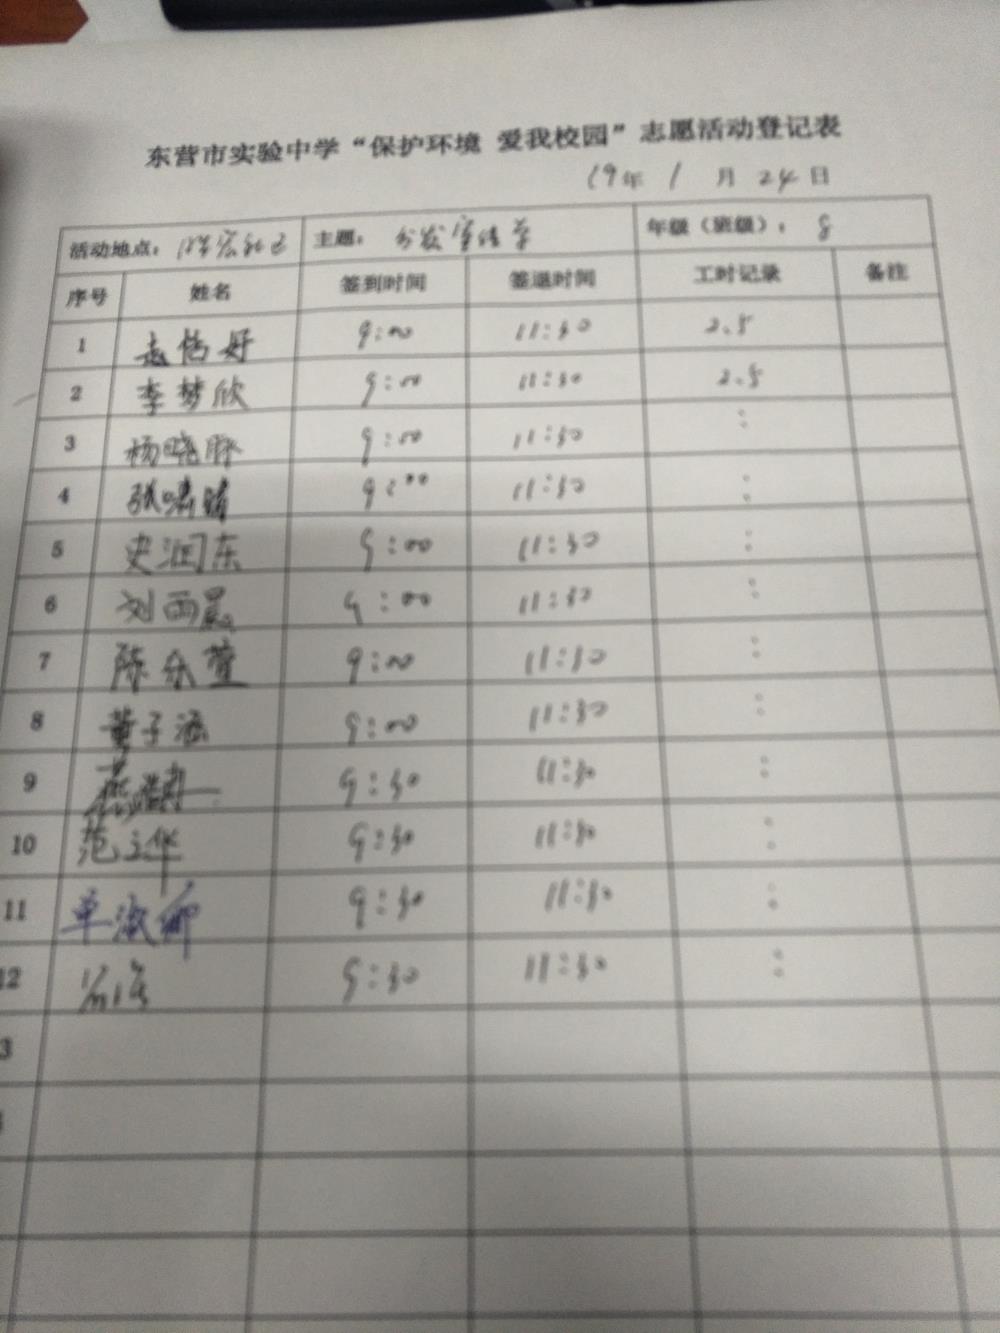 东营市实验中学“保护环境 爱我校园”志愿活动登记表
19年 1 月 24 日
活动地点： 主题：分发宣传单 年级（班级）：8
序号 姓名 签到时间 签退时间 工时记录 备注
1 9:00 11:30 2.5
2 李梦欣 9:00 11:30 2.5
3 杨晓 9:00 11:30 :
4 张啸 9:00 11:30 :
5 史润东 9:00 11:30 :
6 刘雨晨 9:00 11:30 :
7 陈乐萱 9:00 11:30 :
8 董子涵 9:00 11:30 :
9 9:30 11:30 :
10 范立华 9:30 11:30 :
11 单淑卿 9:30 11:30 :
12 9:30 11:30 :
3